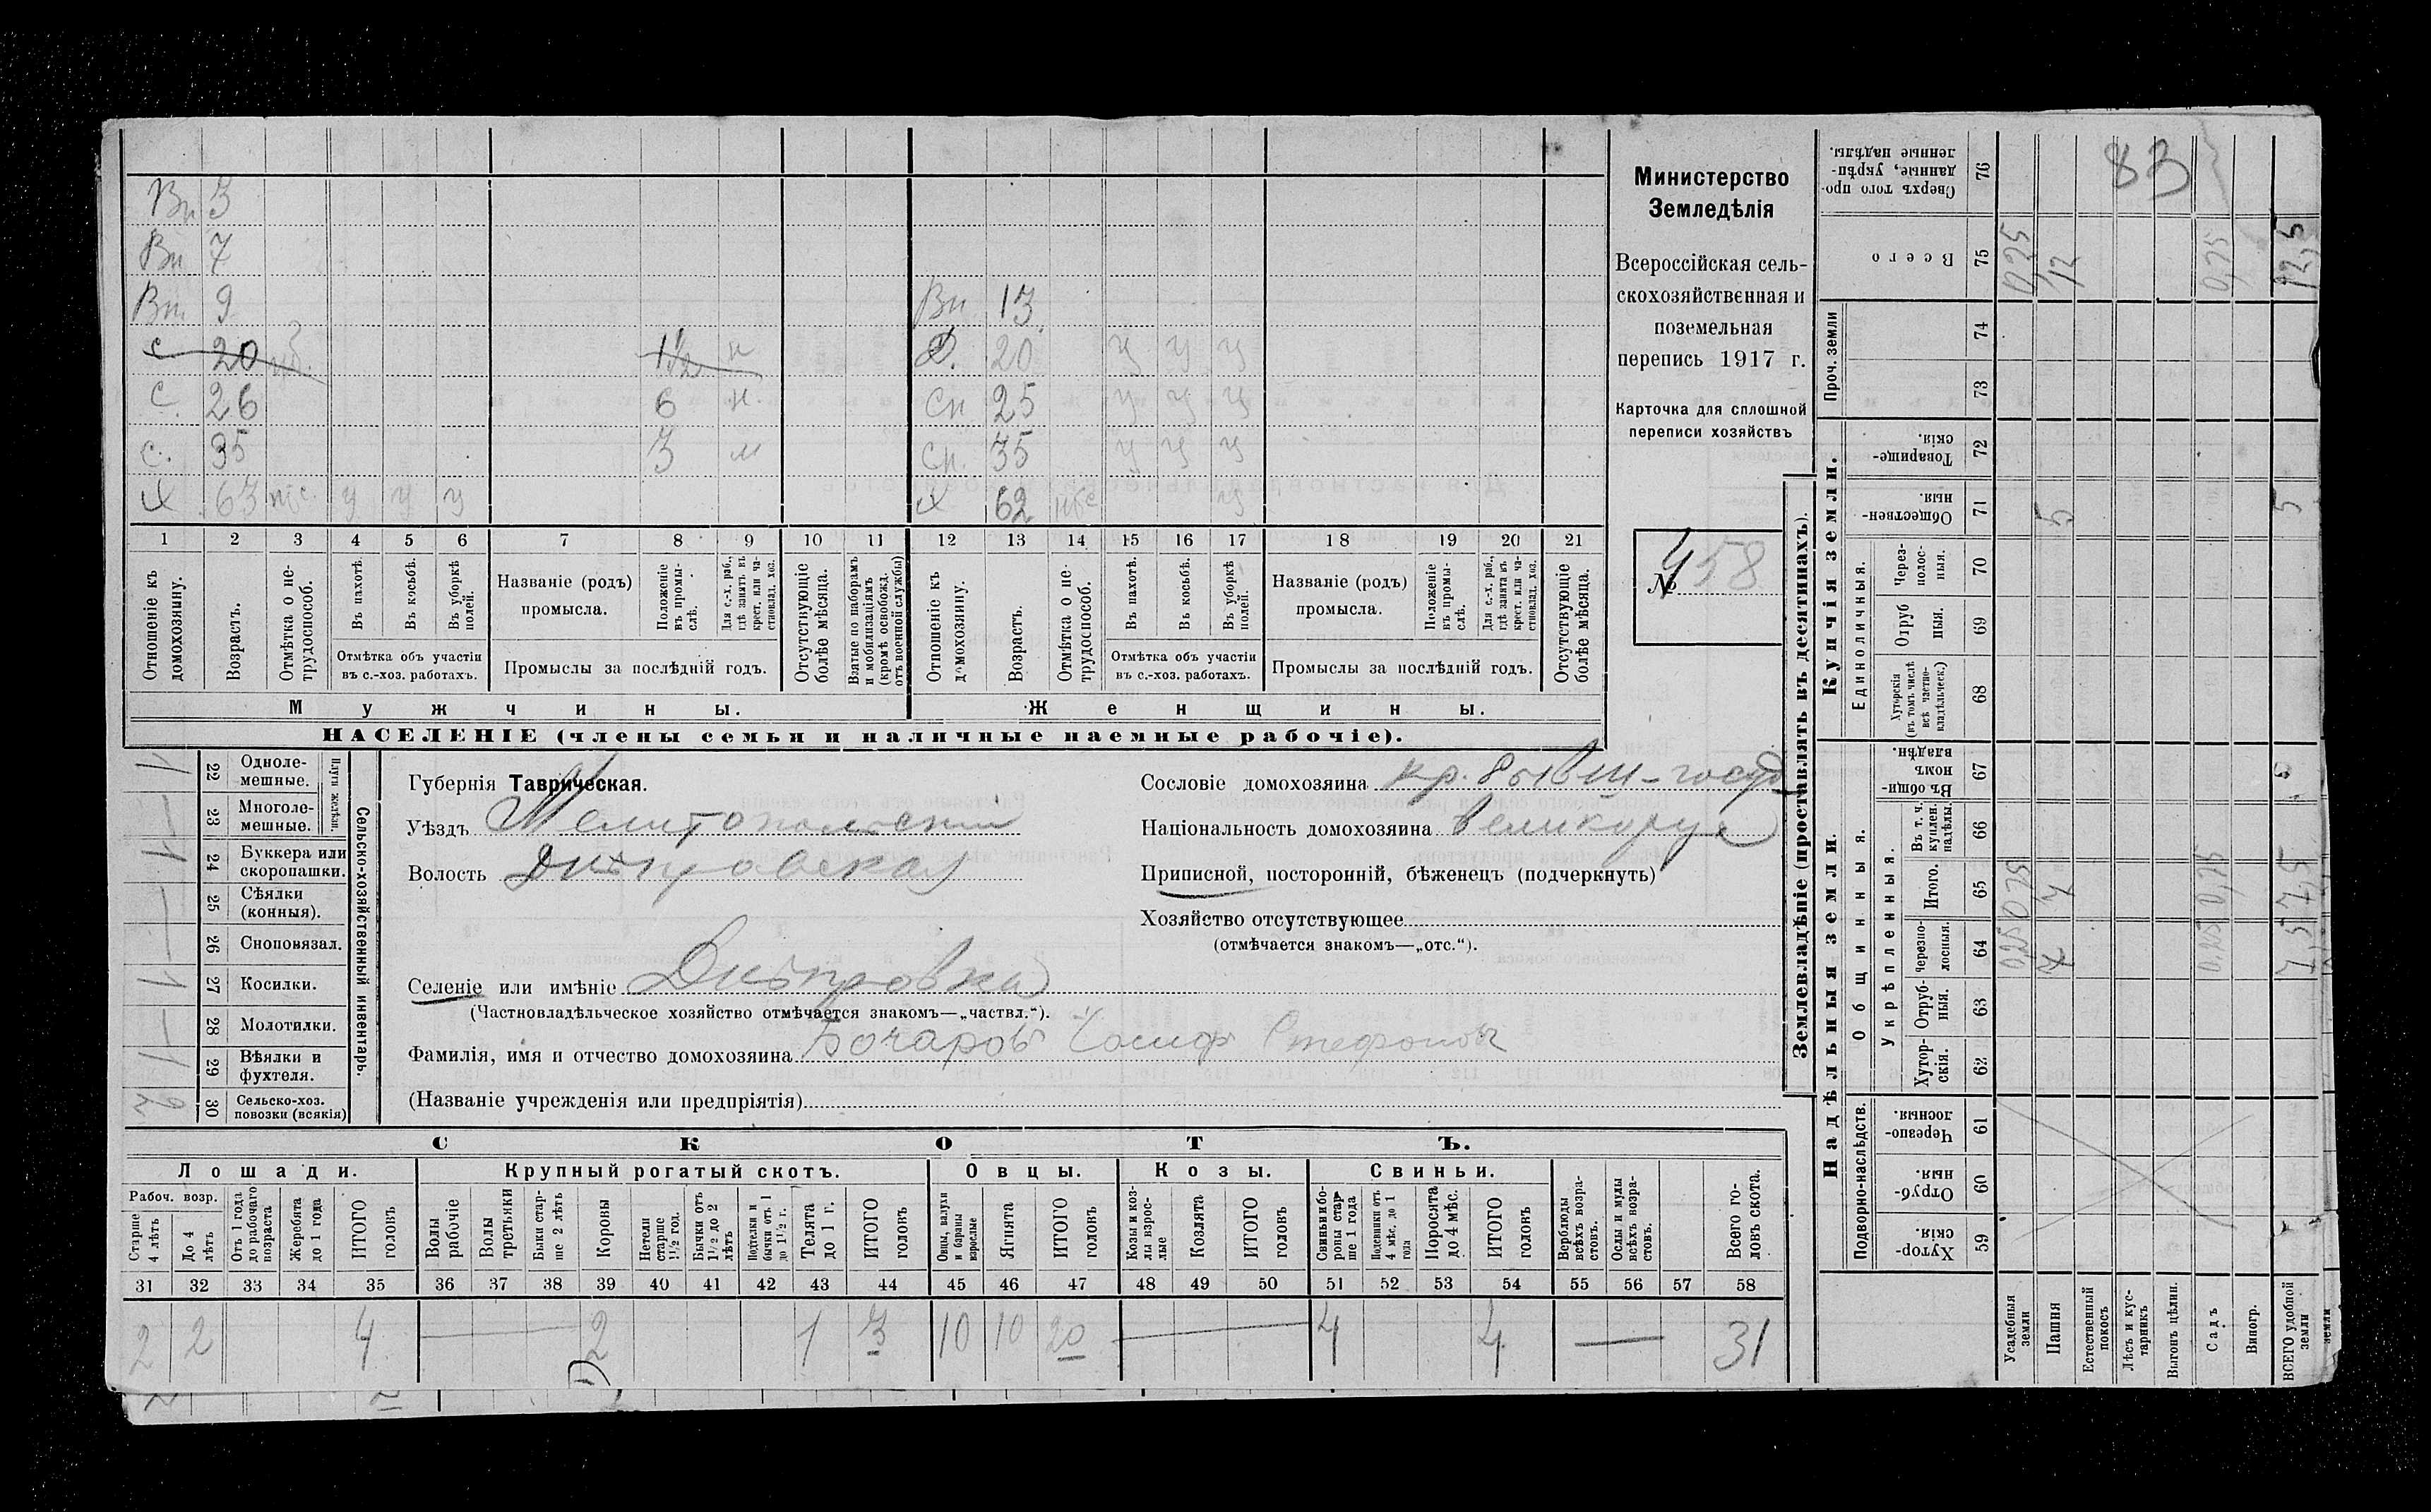 Вн 3
Вн 7
Вн 9 Вн 13
с 20 1½ н Д. 20 у у у
с. 26 6 н. Сн 25 у у у
с. 35 3 н Сн. 35 у у у
х 63 у у у х 62 у
1 2 3 4 5 6 7 8 9 10 11 12 13 14 15 16 17 18 19 20 21
Отношеніе къ домохозяину.
Возрастъ.
Отмѣтка о нетрудоспособ.
Въ пахотѣ.
Въ косьбѣ.
Въ уборкѣ полей.
Отмѣтка объ участіи въ с.-хоз. работахъ.
Названіе (родъ) промысла.
Положеніе въ промыслѣ.
Для с.-х. раб., гдѣ занятъ въ крест. или частновлад. хоз.
Промыслы за послѣдній годъ.
Отсутствующіе болѣе мѣсяца.
Взятые по наборамъ и мобилизаціямъ (кромѣ освобожд. отъ военной службы)
Отношеніе къ домохозяину.
Возрастъ.
Отмѣтка о нетрудоспособ.
Въ пахотѣ.
Въ косьбѣ.
Въ уборкѣ полей.
Отмѣтка объ участіи въ с.-хоз. работахъ.
Названіе (родъ) промысла.
Положеніе въ промыслѣ.
Для с.-х. раб., гдѣ занята въ крест. или частновлад. хоз.
Промыслы за послѣдній годъ.
Отсутствующіе болѣе мѣсяца.
Мужчины. Женщины.
НАСЕЛЕНІЕ (члены семьи и наличные наемные рабочіе).
Министерство
Земледѣлія
Всероссійская сель-
скохозяйственная и
поземельная
перепись 1917 г.
Карточка для сплошной
переписи хозяйствъ
№ 458
1 22 Одноле-мешные.
— 23 Многоле-мешные.
Плуги желѣзн.
1 24 Буккера или скоропашки.
— 25 Сѣялки (конныя).
— 26 Сноповязал.
1 27 Косилки.
— 28 Молотилки.
1 29 Вѣялки и фухтеля.
30 Сельско-хоз. повозки (всякія)
Сельско-хозяйственный инвентарь.
Губернія Таврическая.
Уѣздъ Мелитопольскій
Волость Днѣпровская
Селеніе или имѣніе Днѣпровка
(Частновладѣльческое хозяйство отмѣчается знакомъ—„частвл.“).
Фамилія, имя и отчество домохозяина Бочаровъ Іосифъ Стефановъ
(Названіе учрежденія или предпріятія)
Сословіе домохозяина кр. бывш-госуд
Національность домохозяина великорус
Приписной, посторонній, бѣженецъ (подчеркнуть)
Хозяйство отсутствующее
(отмѣчается знакомъ—„отс.“).
СКОТЪ.
Лошади. Крупный рогатый скотъ. Овцы. Козы. Свиньи.
Рабоч. возр.
Старше 4 лѣтъ
До 4 лѣтъ
Отъ 1 года до рабочаго возраста
Жеребята до 1 года
ИТОГО головъ
Волы рабочіе
Волы третьяки
Быки старше 2 лѣтъ
Коровы
Нетели старше 1½ год.
Бычки отъ 1½ до 2 лѣтъ
Подтелки и бычки отъ 1 до 1½ г.
Телята до 1 г.
ИТОГО головъ
Овцы, валухи и бараны взрослые
Ягнята
ИТОГО головъ
Козы и козлы взрослые
Козлята
ИТОГО головъ
Свиньи и боровы старше 1 года
Подсвинки отъ 4 мѣс. до 1 года
Поросята до 4 мѣс.
ИТОГО головъ
Верблюды всѣхъ возрастовъ.
Ослы и мулы всѣхъ возрастовъ.
Всего головъ скота.
31 32 33 34 35 36 37 38 39 40 41 42 43 44 45 46 47 48 49 50 51 52 53 54 55 56 57 58
2 2 4 — 2 1 3 10 10 20 — 4 4 — 31
Землевладѣніе (проставлять въ десятинахъ).
Надѣльныя земли. Купчія земли.
Подворно-наслѣдств.
Общинныя.
Укрѣпленныя.
Единоличныя.
Проч. земли
Хуторскія 59
Отрубныя. 60
Черезполосныя. 61
Хуторскія. 62
Отрубныя. 63
Черезполосныя. 64
Итого. 65
Въ т. ч. куплен. надѣлы. 66
Въ общинномъ владѣн. 67
Хуторскія (въ томъ числѣ всѣ частновладѣльческ.) 68
Отрубныя. 69
Черезполосныя. 70
Общественныя. 71
Товарищескія. 72
73
74
Всего 75
Сверхъ того проданные, укрѣпленные надѣлы. 76
83
Усадебныя земли 0,25 0,25 0,25
Пашня 7 7 5 12
Естественный покосъ
Лѣсъ и кустарникъ
Выгонъ цѣлин.
Садъ 0,25 0,25 0,25
Виногр.
ВСЕГО удобной земли 7,5 7,5 5 12,5
земли